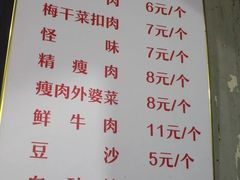 肉 6元/个
梅干菜扣肉 7元/个
怪味 7元/个
精瘦肉 8元/个
瘦肉外婆菜 8元/个
鲜牛肉 11元/个
豆沙 5元/个